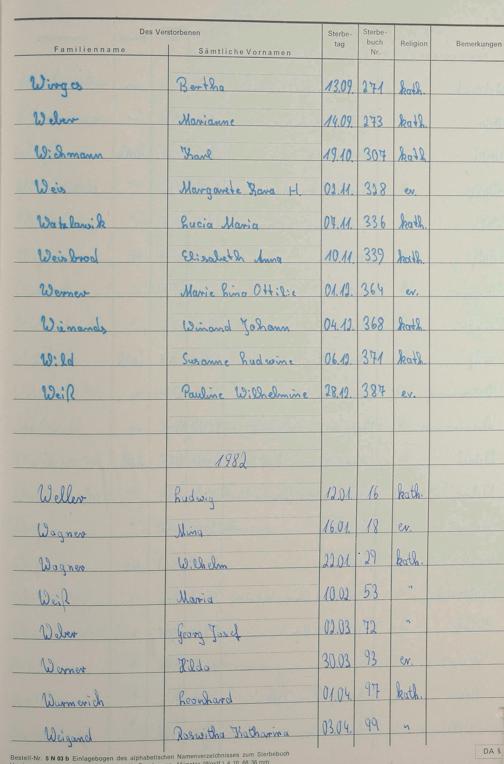 Des Verstorbenen
Familienname Sämtliche Vornamen Sterbe-tag Sterbe-buch Nr. Religion Bemerkungen
Wirges Bertha 13.09. 271 kath.
Weber Marianne 14.09. 273 kath.
Wichmann Karl 19.10. 307 kath
Weis Margarete H. 02.11. 328 ev.
Watzlawik Lucia Maria 07.11. 336 kath.
Weisbrod Elisabeth Anna 10.11. 339 kath.
Werner Marie Lina Ottilie 01.12. 364 ev.
Wienands Winand Johann 04.12. 368 kath.
Wild Susanne Ludwine 06.12. 371 kath.
Weiß Pauline Wilhelmine 28.12. 387 ev.
1982
Weller Ludwig 12.01 16 kath.
Wagner Mina 16.01. 18 ev.
Wagner Wilhelm 22.01 29 kath.
Weiß Maria 10.02 53 "
Weber Georg Josef 02.03 72 "
Werner Hilda 30.03 93 ev.
Wurmerich Leonhard 01.04. 97 kath.
Weigand Roswitha Katharina 03.04. 99 "
Bestell-Nr. S N 03 b Einlagebogen des alphabetischen Namenverzeichnisses zum Sterbebuch DA